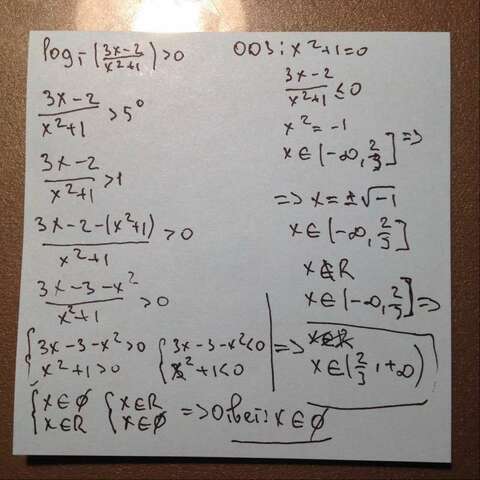 log₅(3x-2/x²+1)>0
3x-2/x²+1 >5⁰
3x-2/x²+1 >1
3x-2-(x²+1)/x²+1 >0
3x-3-x²/x²+1 >0
{3x-3-x²>0 {3x-3-x²<0
{x²+1>0 {x²+1<0
{x∈∅ {x∈R
{x∈R {x∈∅ =>Ответ: x∈∅
ОДЗ: x²+1=0
3x-2/x²+1 ≤0
x²=-1
x∈(-∞,2/3] =>
=> x=±√-1
x∈(-∞,2/3]
x∉R
x∈(-∞,2/3] =>
=> x∈(2/3,+∞)